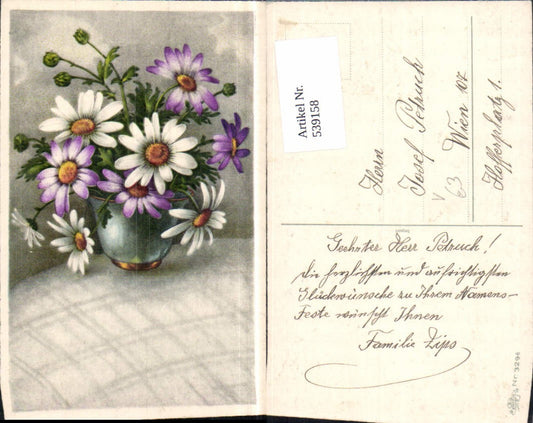 Artikel Nr.
539158
Herrn
Josef Petruch
Wien 107
Hafferplatz 1.
63
Geehrter Herr Petruch!
Die herzlichsten und aufrichtigsten
Glückwünsche zu Ihrem Namens-
Feste wünscht Ihnen
Familie Zips
Nr 3294